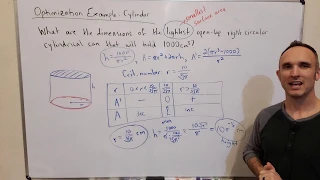 Optimization Example: Cylinder
smallest
surface area
What are the dimensions of the lightest open-top right circular
cylindrical can that will hold 1000cm³?
h = 1000/πr²
A = πr² + 2πrh
A' = 2(πr³-1000)/r²
Crit. number r = 10/∛π
A' - 0 +
A dec inc
r = 10/∛π cm
height